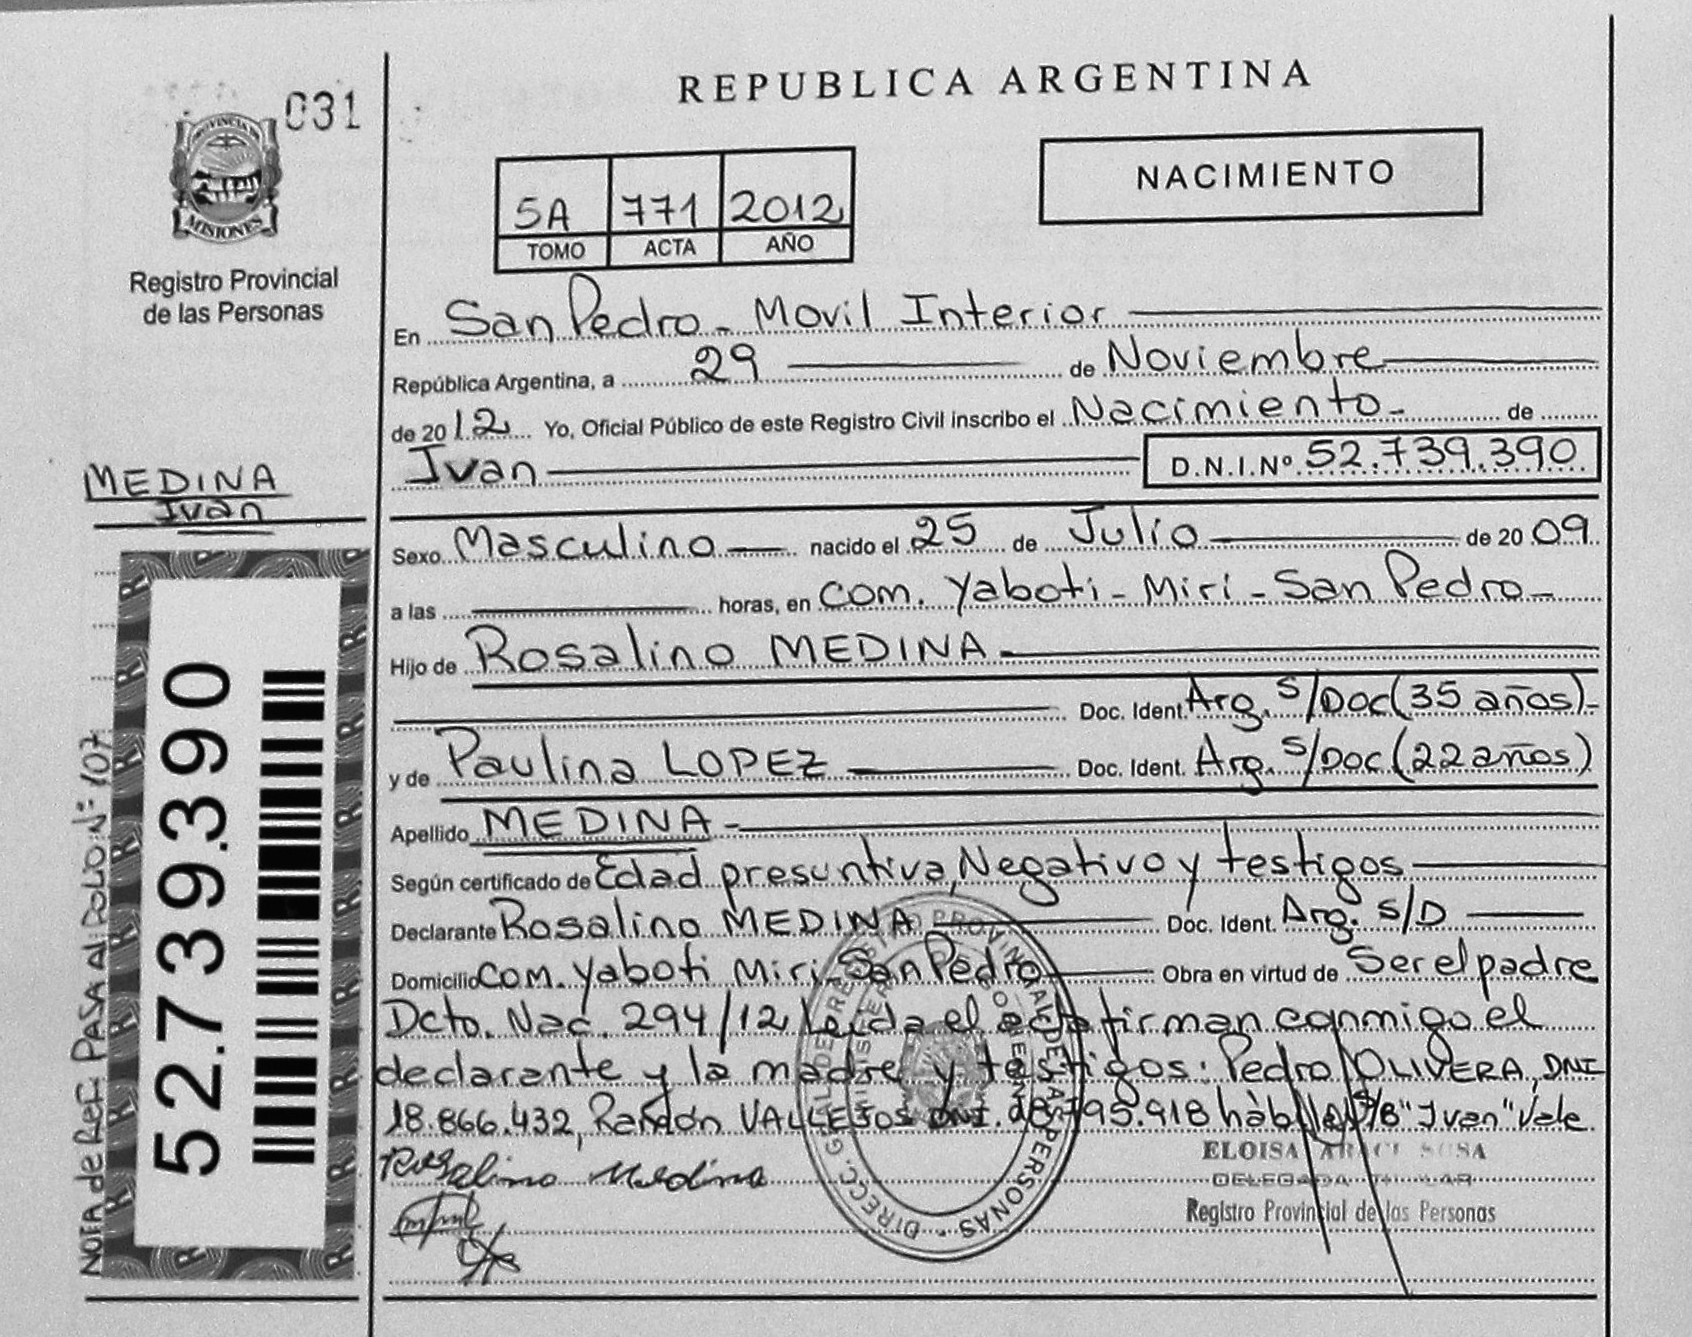 REPUBLICA ARGENTINA
031
PROVINCIA DE
MISIONES
Registro Provincial
de las Personas
NACIMIENTO
5A 771 2012
TOMO ACTA AÑO
En San Pedro - Movil Interior
República Argentina, a 29 de Noviembre
de 2012 Yo, Oficial Público de este Registro Civil inscribo el Nacimiento - de
Ivan D.N.I.Nº 52.739.390
MEDINA
Ivan
Sexo Masculino nacido el 25 de Julio de 2009
a las horas, en Com. Yaboti - Miri - San Pedro -
Hijo de Rosalino MEDINA
Doc. Ident. Arg. S/Doc (35 años) -
y de Paulina LOPEZ Doc. Ident. Arg. S/Doc (22 años)
Apellido MEDINA -
Según certificado de Edad presuntiva, Negativo y testigos
Declarante Rosalino MEDINA Doc. Ident. Arg. S/D
Domicilio Com. Yaboti Miri - San Pedro Obra en virtud de Ser el padre
Dcto. Nac. 294/12 Leída el acta firman conmigo el
declarante y la madre y testigos: Pedro OLIVERA, DNI
18.866.432, Ramón VALLEJOS DNI. "Ivan" Vale
Rosalino Medina
ELOISA SOSA
DELEGADA TITULAR
Registro Provincial de las Personas
52.739.390
NOTA de Ref. PASA al FOLIO: Nº 107